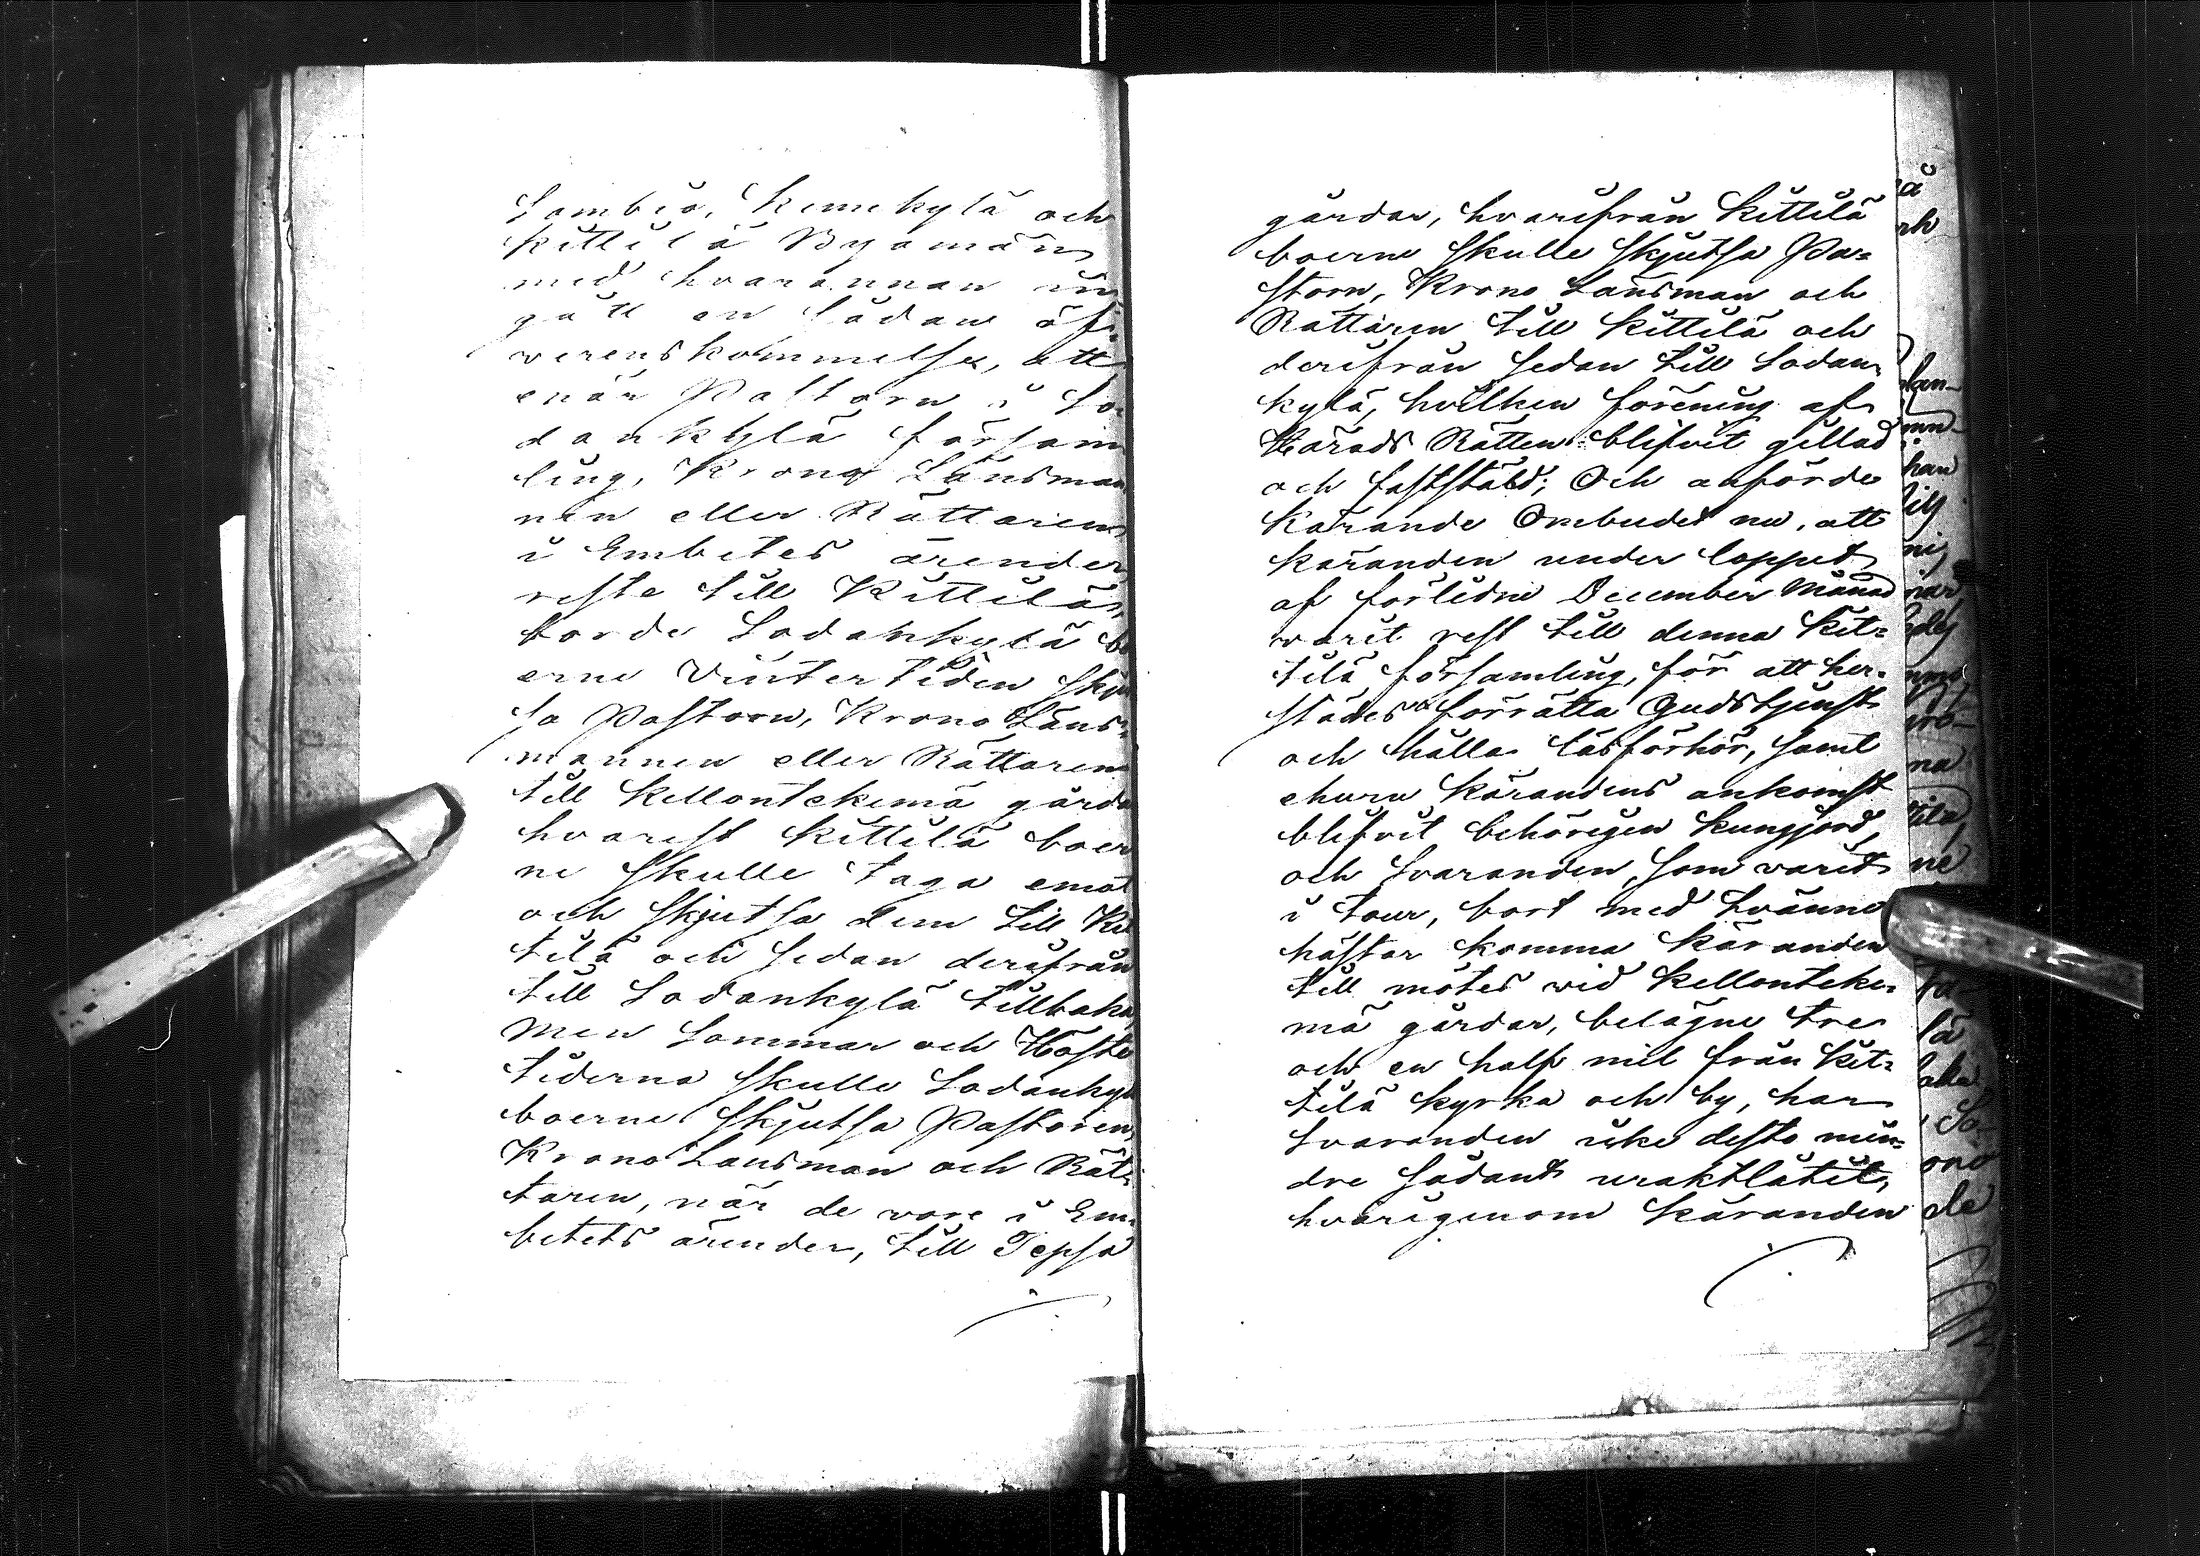 Sombiö, Kemikylä och
Kittilä Byamän
med hvarannan in
gått en sådan öf-
werenskommelse, att
enär Pastorn i So-
dankylä försam
ling, Krono Länsman
nen eller Rättaren
i Embetes ärender
reste till Kittilä,
borde Sodankylä bo
erne Vintertiden skju
sa Pastorn, Krono Läns-
mannen eller Rättaren
till Kellontekemä gårda
hvarest Kittilä boer
ne skulle taga emot
och skjutsa dem till Kit
tilä och sedan derifrån
till Sodankylä tillbaka,
Men Sommar och Höste
tiderna skulle Sodanky
boerne skjutsa Pastoren,
Krono Länsman och Rät-
taren, när de vore i Em-
betets ärender, till Tepsa
gårdar, hvarifrån Kittilä
boerne skulle skjutsa Pa-
storn, Krono Länsman och
Rättaren till Kittilä och
derifrån sedan till Sodan-
kylä, hvilken förening af
Härads Rätten blifvit gillad
och faststäld; Och anförde
Kärande Ombudet nu, att
käranden under loppet
af förlidne December Månad
warit rest till denna Kit-
tilä församling, för att her-
städes förrätta Gudstjenst
och hålla läsförhör, samt
ehuru Kärandens ankomst
blifvit behörigen kungjord,
och Svaranden, som varit
i tour, bort med tvänne
hästar komma Käranden
till mötes vid Kellonteke-
mä gårdar, belägne tre
och en half mil från Kit-
tilä kyrka och by, har
Svaranden icke desto min-
dre sådant uraktlåtit,
hvarigenom Käranden